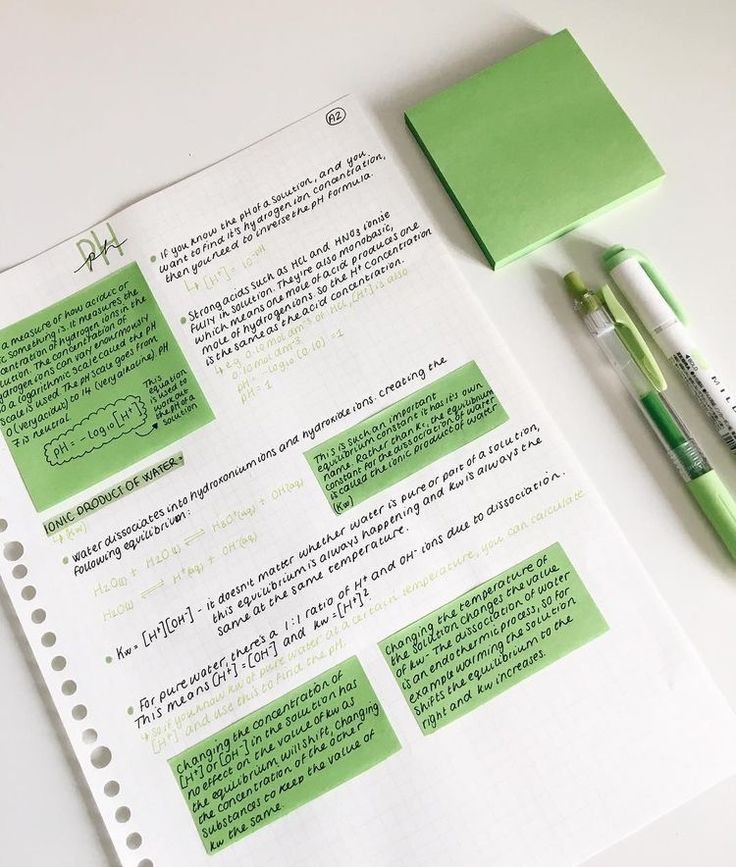 A2
pH
ph
a measure of how acidic or
something is. it measures the
concentration of hydrogen ions in the
solution. The concentration of
hydrogen ions can vary enormously
so a logarithmic scale called the pH
scale is used. The pH scale goes from
0 (very acidic) to 14 (very alkaline) pH
7 is neutral
pH = -Log10[H+]
This
equation
is used to
work out
the pH of a
solution
• If you know the pH of a solution, and you
want to find it's hydrogen ion concentration,
then you need to inverse the pH formula.
↳ [H+] = 10-pH
• Strong acids such as HCl and HNO3 ionise
fully in solution. They're also monobasic,
which means one mole of acid produces one
mole of hydrogen ions. So the H+ concentration
is the same as the acid concentration.
↳ e.g. 0.10 mol dm-3 of HCl, [H+] is also
0.10 mol dm-3
pH = -log10(0.10) = 1
pH = 1
IONIC PRODUCT OF WATER.
↳ (Kw)
This is such an important
equilibrium constant it has it's own
name. Rather than Kc, the equilibrium
constant for the dissociation of water
is called the ionic product of water
(Kw)
• Water dissociates into hydroxonium ions and hydroxide ions. creating the
following equilibrium:
H2O(l) + H2O(l) ⇌ H3O+(aq) + OH-(aq)
H2O(l) ⇌ H+(aq) + OH-(aq)
• Kw = [H+][OH-] - it doesn't matter whether water is pure or part of a solution,
this equilibrium is always happening and Kw is always the
same at the same temperature.
• For pure water, there's a 1:1 ratio of H+ and OH- ions due to dissociation.
This means [H+] = [OH-] and Kw = [H+]2
↳ So if you know Kw of pure water at a certain temperature, you can calculate
[H+] and use this to find the pH.
Changing the concentration of
[H+] or [OH-] in the solution has
no effect on the value of Kw as
the equilibrium will shift, changing
the concentration of the other
substances to keep the value of
Kw the same.
Changing the temperature of
the solution changes the value
of Kw - The dissociation of water
is an endothermic process, so for
example warming the solution
shifts the equilibrium to the
right and Kw increases.